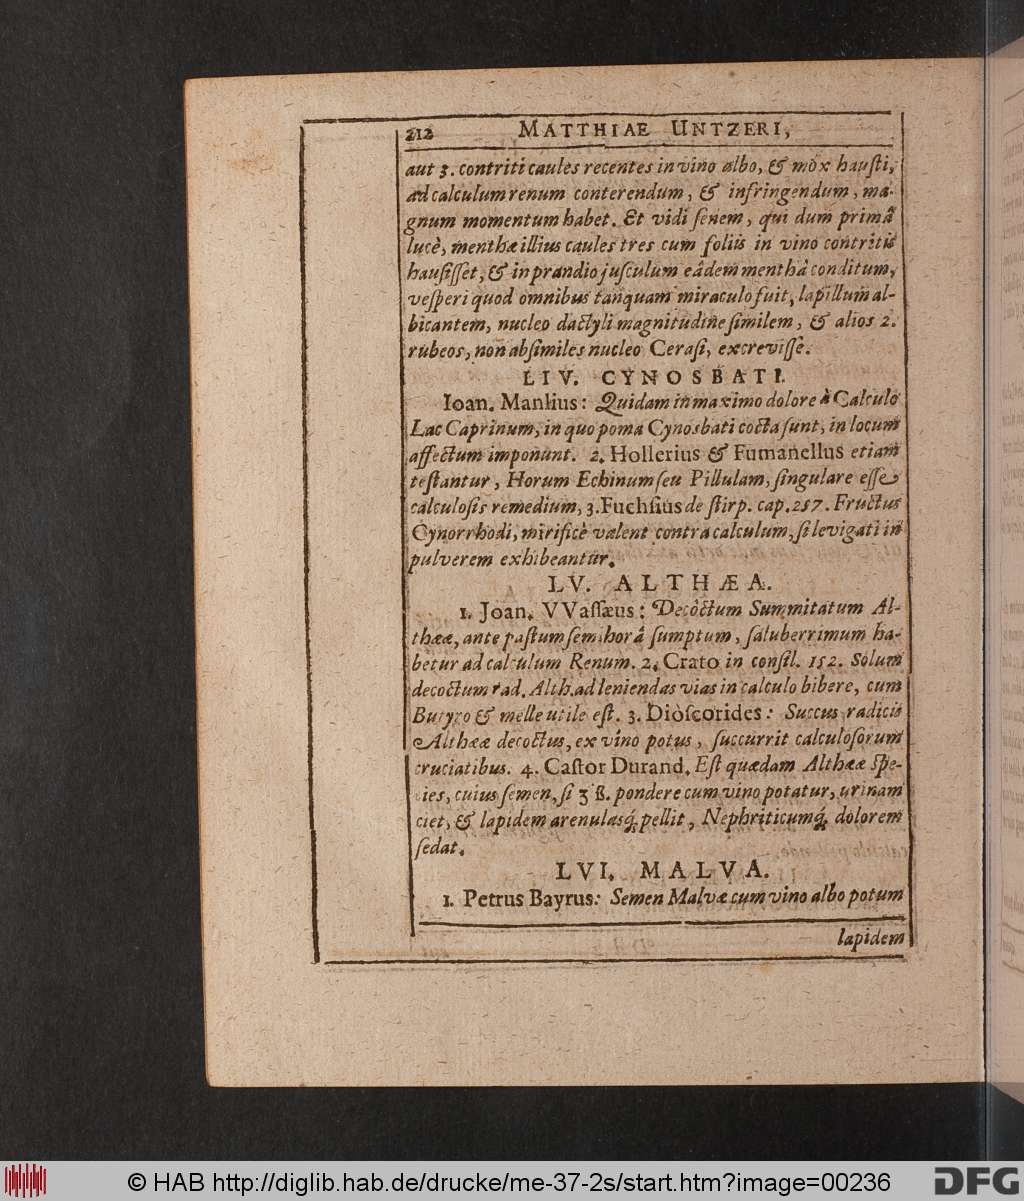 212 MATTHIAE UNTZERI,
aut 3. contriti caules recentes in vino albo, & mòx hausti,
ad calculum renum conterendum, & infringendum, ma-
gnum momentum habet. Et vidi senem, qui dum primâ
lucè, menthæ illius caules tres cum foliis in vino contritis
hausisset, & in prandio jusculum eâdem menthâ conditum,
vesperi quod omnibus tanquam miraculo fuit, lapillum al-
bicantem, nucleo dactyli magnitudine similem, & alios 2.
rubeos, non absimiles nucleo Cerasi, excrevisse.
LIV. CYNOSBATI.
Ioan. Manlius: Quidam in maximo dolore à Calculo
Lac Caprinum, in quo poma Cynosbati cocta sunt, in locum
affectum imponunt. 2. Hollerius & Fumanellus etiam
testantur, Horum Echinum seu Pillulam, singulare esse
calculosis remedium, 3. Fuchsius de stirp. cap. 257. Fructus
Cynorrhodi, mirificè valent contra calculum, si levigati in
pulverem exhibeantur.
LV. ALTHÆA.
1. Joan. VVassæus: Decoctum Summitatum Al-
thææ, ante pastum semihorâ sumptum, saluberrimum ha-
betur ad calculum Renum. 2. Crato in consil. 152. Solum
decoctum rad. Alth. ad leniendas vias in calculo bibere, cum
Butyro & melle utile est. 3. Dioscorides: Succus radicis
Althææ decoctus, ex vino potus, succurrit calculosorum
cruciatibus. 4. Castor Durand. Est quædam Althææ spe-
cies, cuius semen, si ʒ ß. pondere cum vino potatur, urinam
ciet, & lapidem arenulasq́; pellit, Nephriticumq́; dolorem
sedat.
LVI. MALVA.
1. Petrus Bayrus: Semen Malvæ cum vino albo potum
lapidem
© HAB http://diglib.hab.de/drucke/me-37-2s/start.htm?image=00236
DFG